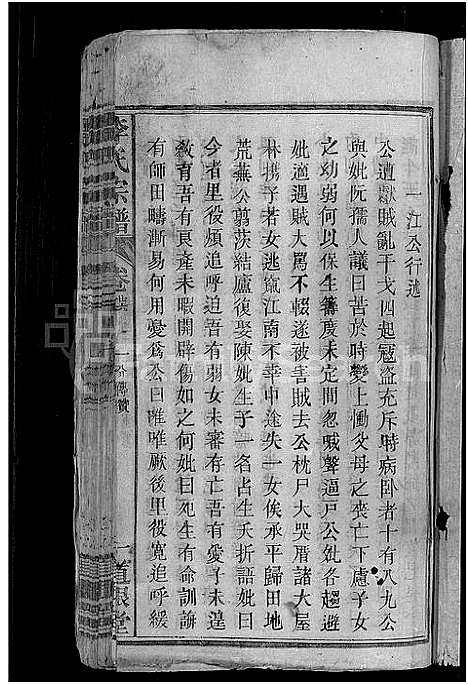 一江公行述
公遭獻賊亂干戈四起寇盜充斥時病卧者十有八九公
與妣阮孺人議曰苦於時變上慟父母之喪亡下慮子女
之幼弱何以保生籌度未定間忽喊聲逼戸公妣各趨避
妣適遇賊大罵不輟遂被害賊去公枕尸大哭厝諸大屋
林携子若女逃竄江南不幸中途失一女俟承平歸田地
荒蕪公翦茨結廬復娶陳妣生子一名占生夭折語妣曰
今者里役頻追呼迫吾有弱女未審存亡吾有愛子未遑
敎育吾有良產未暇開辟傷如之何妣曰死生有命訓誨
有師田疇漸易何用憂爲公曰唯唯厥後里役寬追呼緩
李氏宗譜
公傳贊
一道銀堂